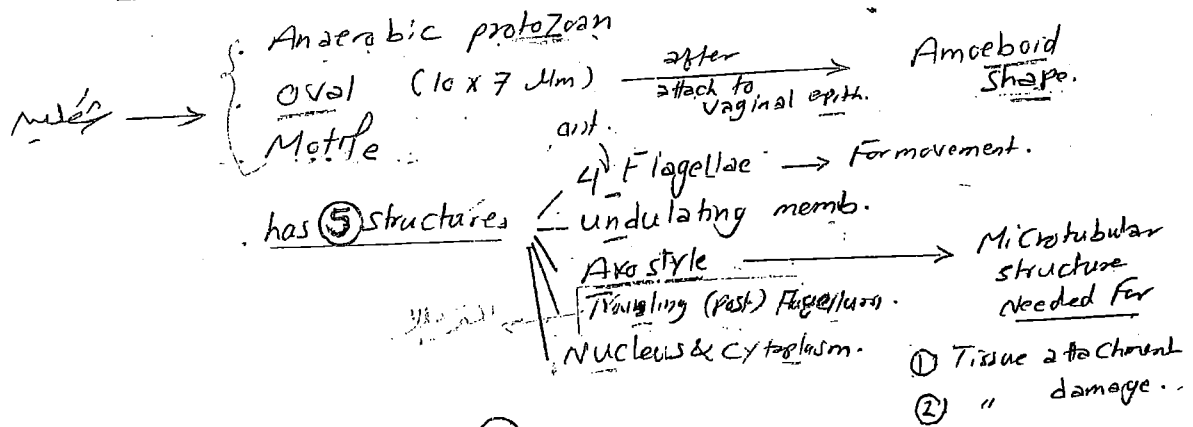 Anaerobic protozoan
Oval (10 x 7 Mm) after attach to vaginal epith. Amoeboid shape.
Motile
ant.
4 Flagellae → For movement.
has 5 structures
undulating memb.
Axostyle → Microtubular structure Needed For
(post) Flagellum.
Nucleus & Cytoplasm.
① Tissue attachment
② " damage..